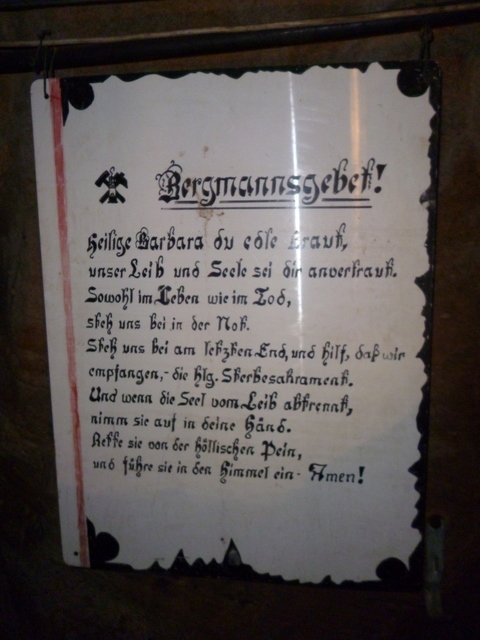 Bergmannsgebet!
Heilige Barbara du edle Braut,
unser Leib und Seele sei dir anvertraut.
Sowohl im Leben wie im Tod,
steh uns bei in der Not.
Steh uns bei am letzten End, und hilf, daß wir
empfangen,- die hlg. Sterbesakrament.
Und wenn die Seel vom Leib abtrennt,
nimm sie auf in deine Händ.
Rette sie von der höllischen Pein,
und führe sie in den Himmel ein - Amen!